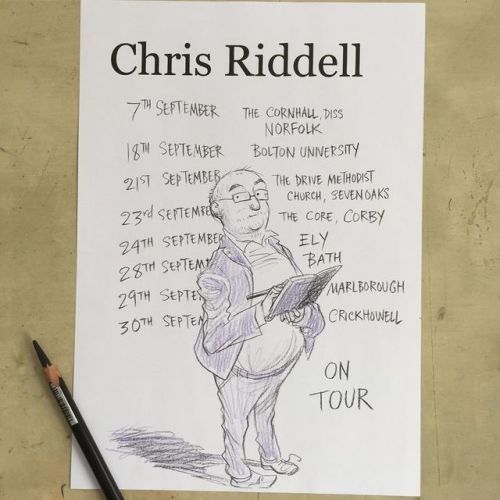 Chris Riddell
7TH SEPTEMBER THE CORNHALL, DISS
NORFOLK
18TH SEPTEMBER BOLTON UNIVERSITY
21ST SEPTEMBER THE DRIVE METHODIST
CHURCH, SEVENOAKS
23rd SEPTEMBE THE CORE, CORBY
24TH SEPTEMBER ELY
28TH SEPTEM BATH
29TH SEPTE MARLBOROUGH
30TH SEPTEM CRICKHOWELL
ON
TOUR